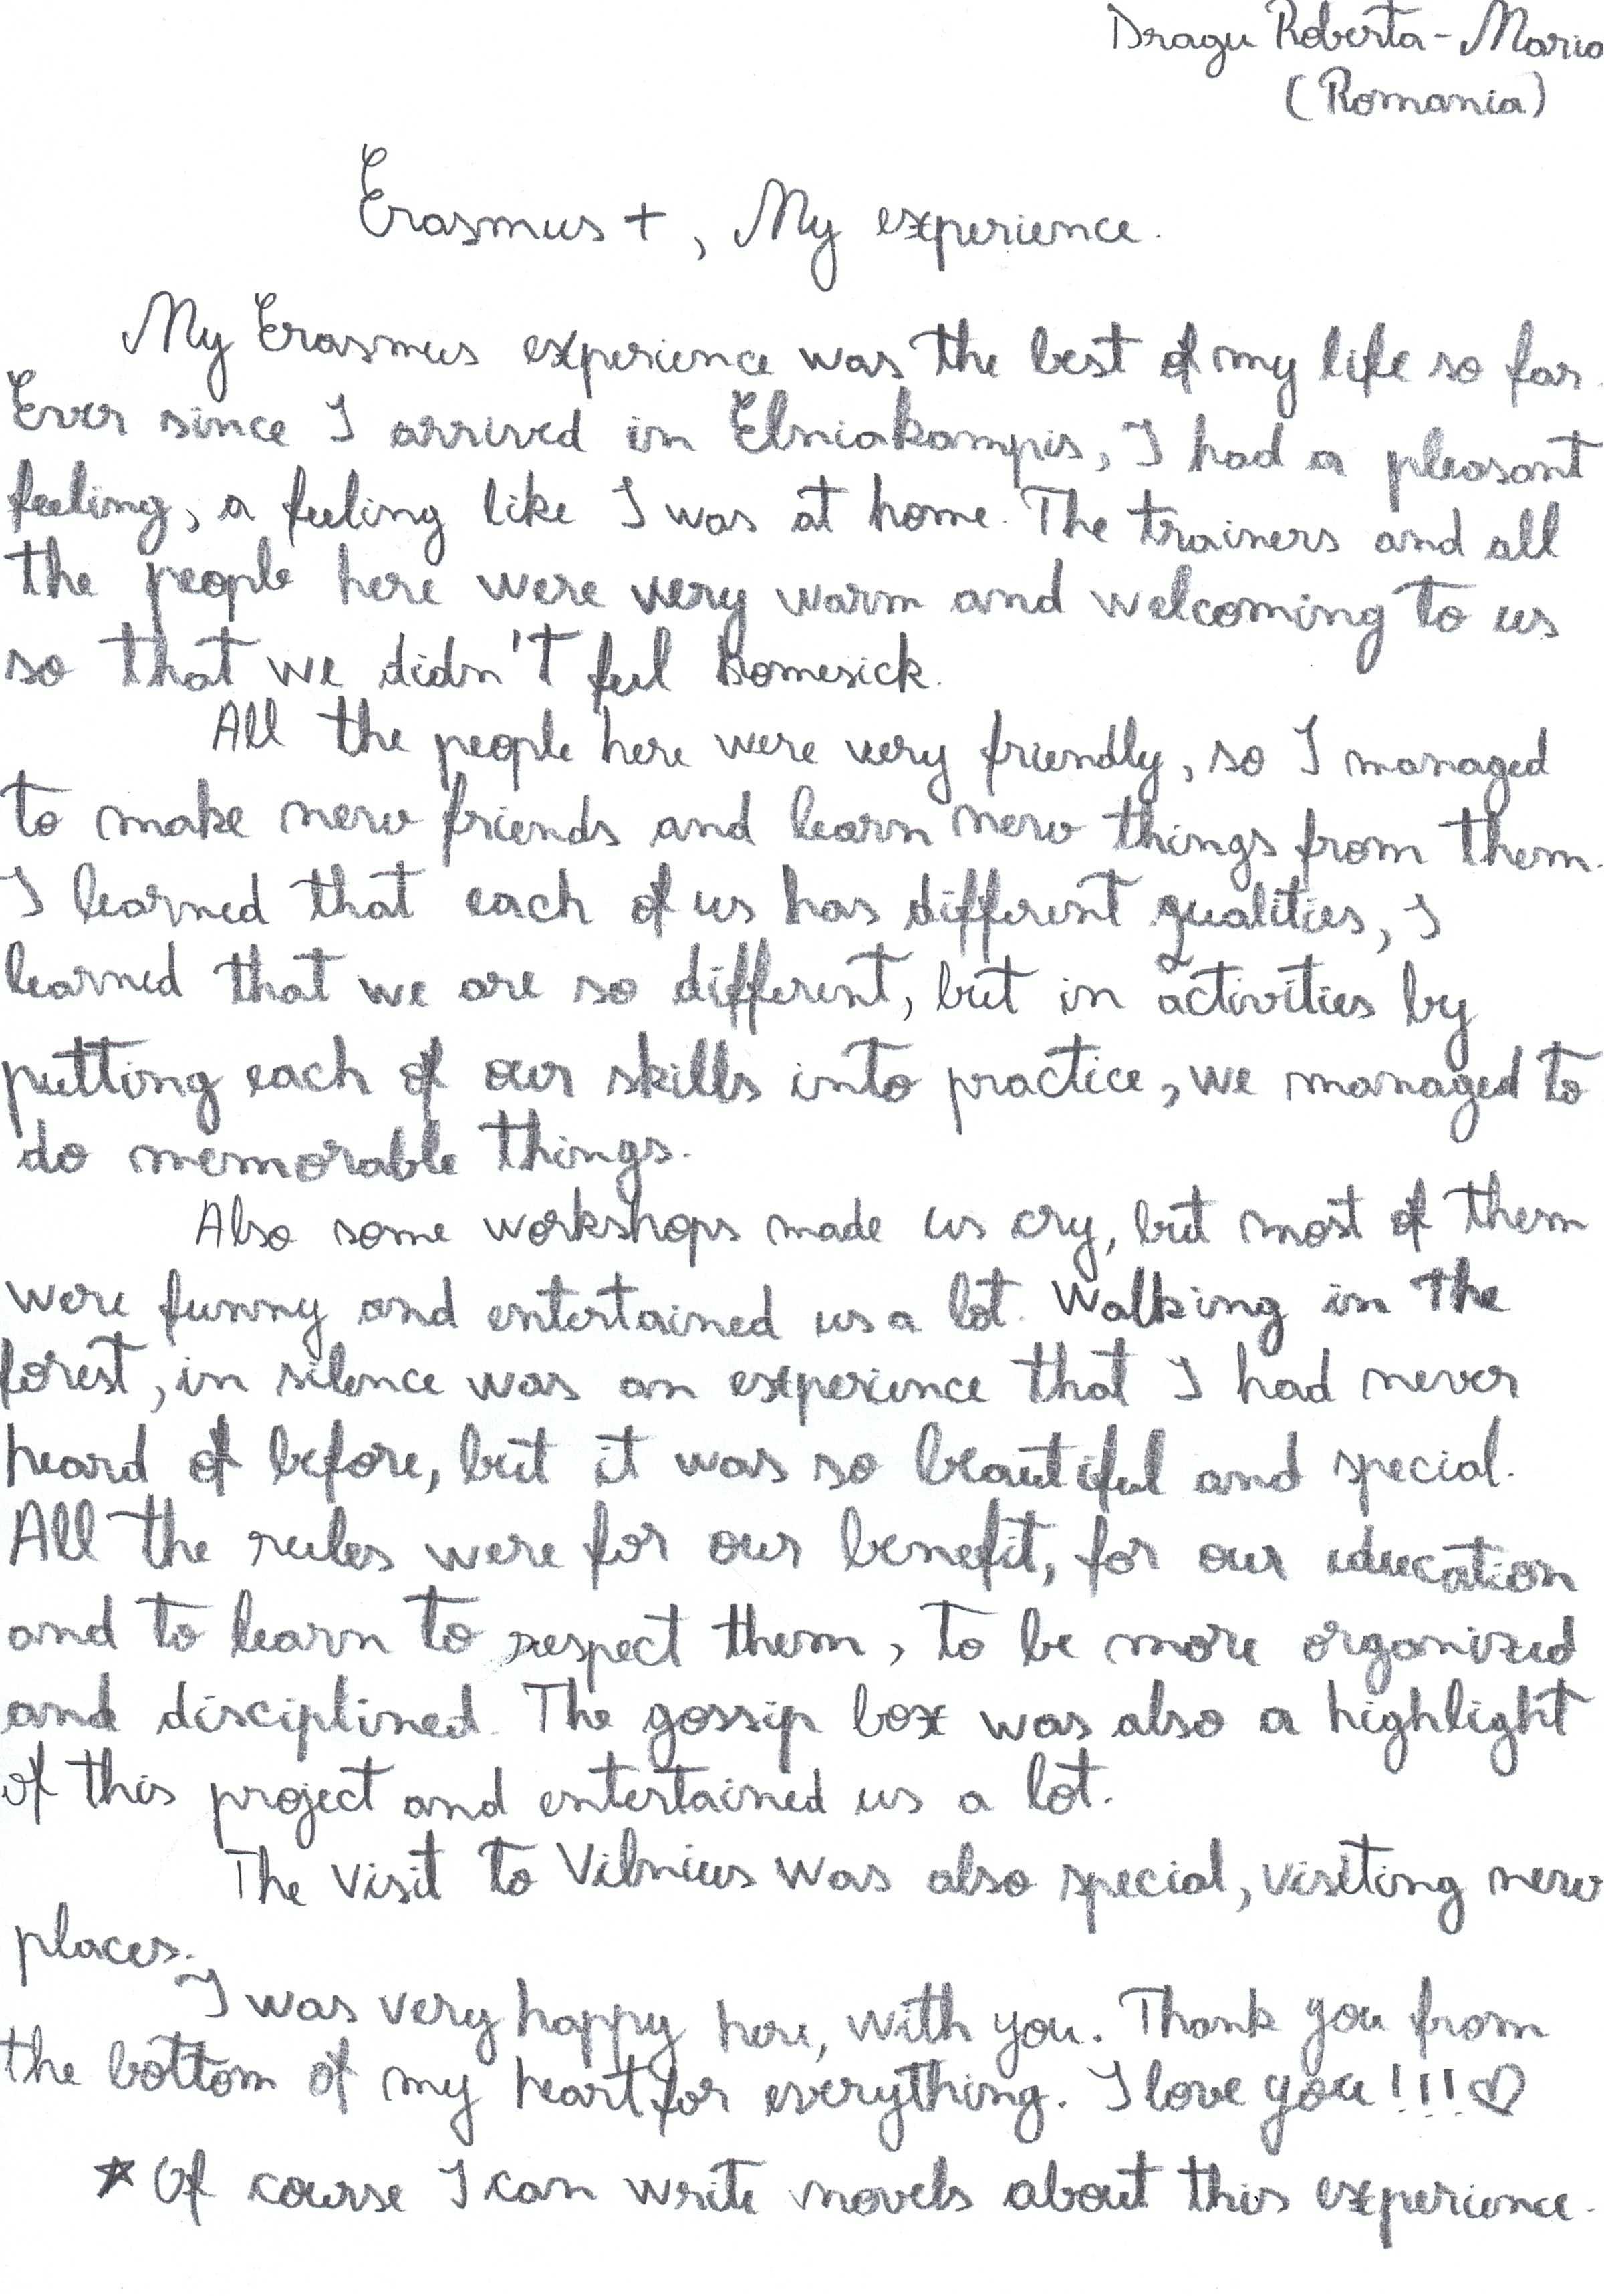 Dragu Roberta-Maria
(Romania)
Erasmus+, My experience.
My Erasmus experience was the best of my life so far.
Ever since I arrived in Elniakampis, I had a pleasant
feeling, a feeling like I was at home. The trainers and all
the people here were very warm and welcoming to us
so that we didn't feel homesick.
All the people here were very friendly, so I managed
to make new friends and learn new things from them.
I learned that each of us has different qualities, I
learned that we are so different, but in activities by
putting each of our skills into practice, we managed to
do memorable things.
Also some workshops made us cry, but most of them
were funny and entertained us a lot. Walking in the
forest, in silence was an experience that I had never
heard of before, but it was so beautiful and special.
All the rules were for our benefit, for our education
and to learn to respect them, to be more organized
and disciplined. The gossip box was also a highlight
of this project and entertained us a lot.
The visit to Vilnius was also special, visiting new
places.
I was very happy here, with you. Thank you from
the bottom of my heart for everything. I love you!!!♡
★ Of course I can write novels about this experience.